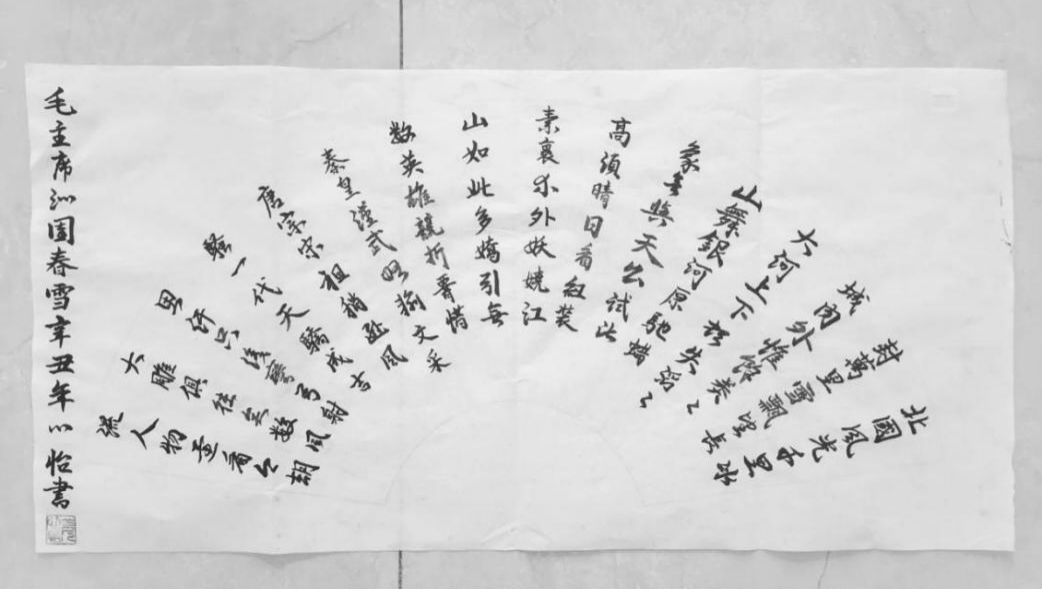 北國風光千里冰
封萬里雪飄望長
城内外惟餘莽々
大河上下頓失滔々
山舞銀河原馳蠟
象欲與天公試比
高須晴日看紅裝
素裹分外妖嬈江
山如此多嬌引無
数英雄競折腰惜
秦皇漢武略輸文采
唐宗宋祖稍遜風
騷一代天驕成吉
思汗只識彎弓射
大雕俱往矣數風
流人物還看今朝
毛主席沁園春雪辛丑年心怡書